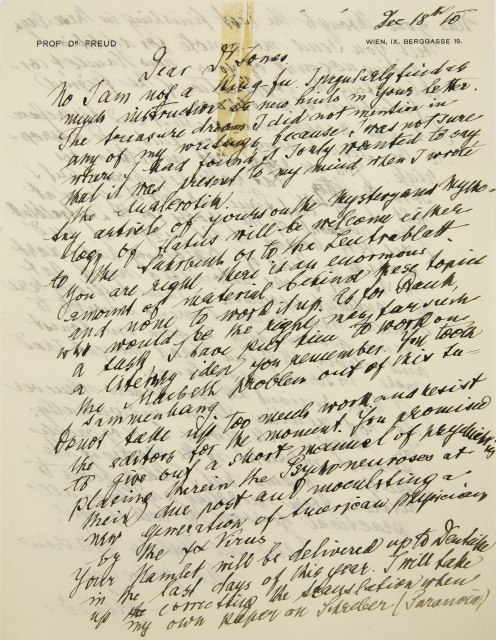 Dec 18th 10
PROF. Dr. FREUD
WIEN, IX. BERGGASSE 19.
Dear Dr Jones
No I am not a
much instruction and new hints in your letter.
The treasure dream I did not mention in
any of my writings because I was not sure
where I had found it. I only wanted to say
that it was present to my mind when I wrote
the Analerotik.
Any article of yours on the Mystery and Mytho-
logy of flatus will be welcome either
to the Jahrbuch or to the Zentralblatt
You are right, there is an enormous
amount of material behind these topics
and none to work it up. As for Rank,
who would be the right man for such
a task I have put him to work on
a literary idea you remember. You took
the Macbeth problem out of this Zu-
sammenhang.
Do not take up too much work and resist
the editors for the moment. You promised
to give out a short manual of psychiatry
placing therein the Psychoneuroses at
their due post and inoculating a
new generation of American physicians
by the Virus
Your Hamlet will be delivered up to Deuticke
in the last days of this year. I will take
up correcting the translation when
my own paper on Schreber (Paranoia)